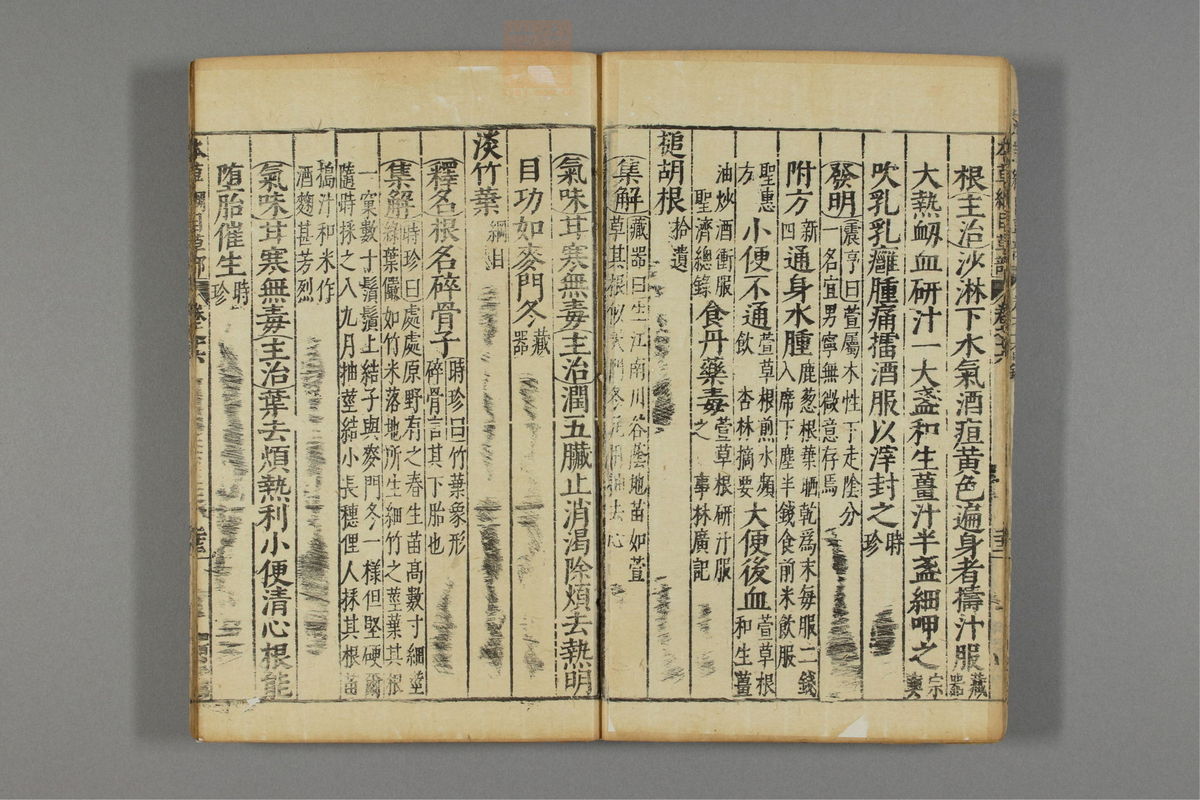 根主治沙淋下水氣酒疸黃色遍身者擣汁服藏器
大熱衂血研汁一大盞和生薑汁半盞細呷之宗奭
吹乳乳癰腫痛擂酒服以滓封之時珍
發明震亨曰萱屬木性下走陰分
一名宜男寧無微意存焉
附方新四通身水腫鹿葱根葉晒乾為末每服二錢
入席下塵半錢食前米飲服
聖惠方小便不通萱草根煎水頻飲杏林摘要大便後血萱草根和生薑
油炒酒衝服聖濟總錄食丹藥毒萱草根研汁服之事林廣記
搥胡根拾遺
集解藏器曰生江南川谷蔭地苗如萱
草其根似天門冬凡用抽去心
氣味甘寒無毒主治潤五臟止消渴除煩去熱明
目功如麥門冬藏器
淡竹葉綱目
釋名根名碎骨子時珍曰竹葉象形
碎骨言其下胎也
集解時珍曰處處原野有之春生苗高數寸細莖
綠葉儼如竹米落地所生細竹之莖葉其根
一窠數十鬚鬚上結子與麥門冬一樣但堅硬爾
隨時采之八九月抽莖結小長穗俚人采其根苗
搗汁和米作
酒麴甚芳烈
氣味甘寒無毒主治葉去煩熱利小便清心根能
墮胎催生時珍
本草綱目草部